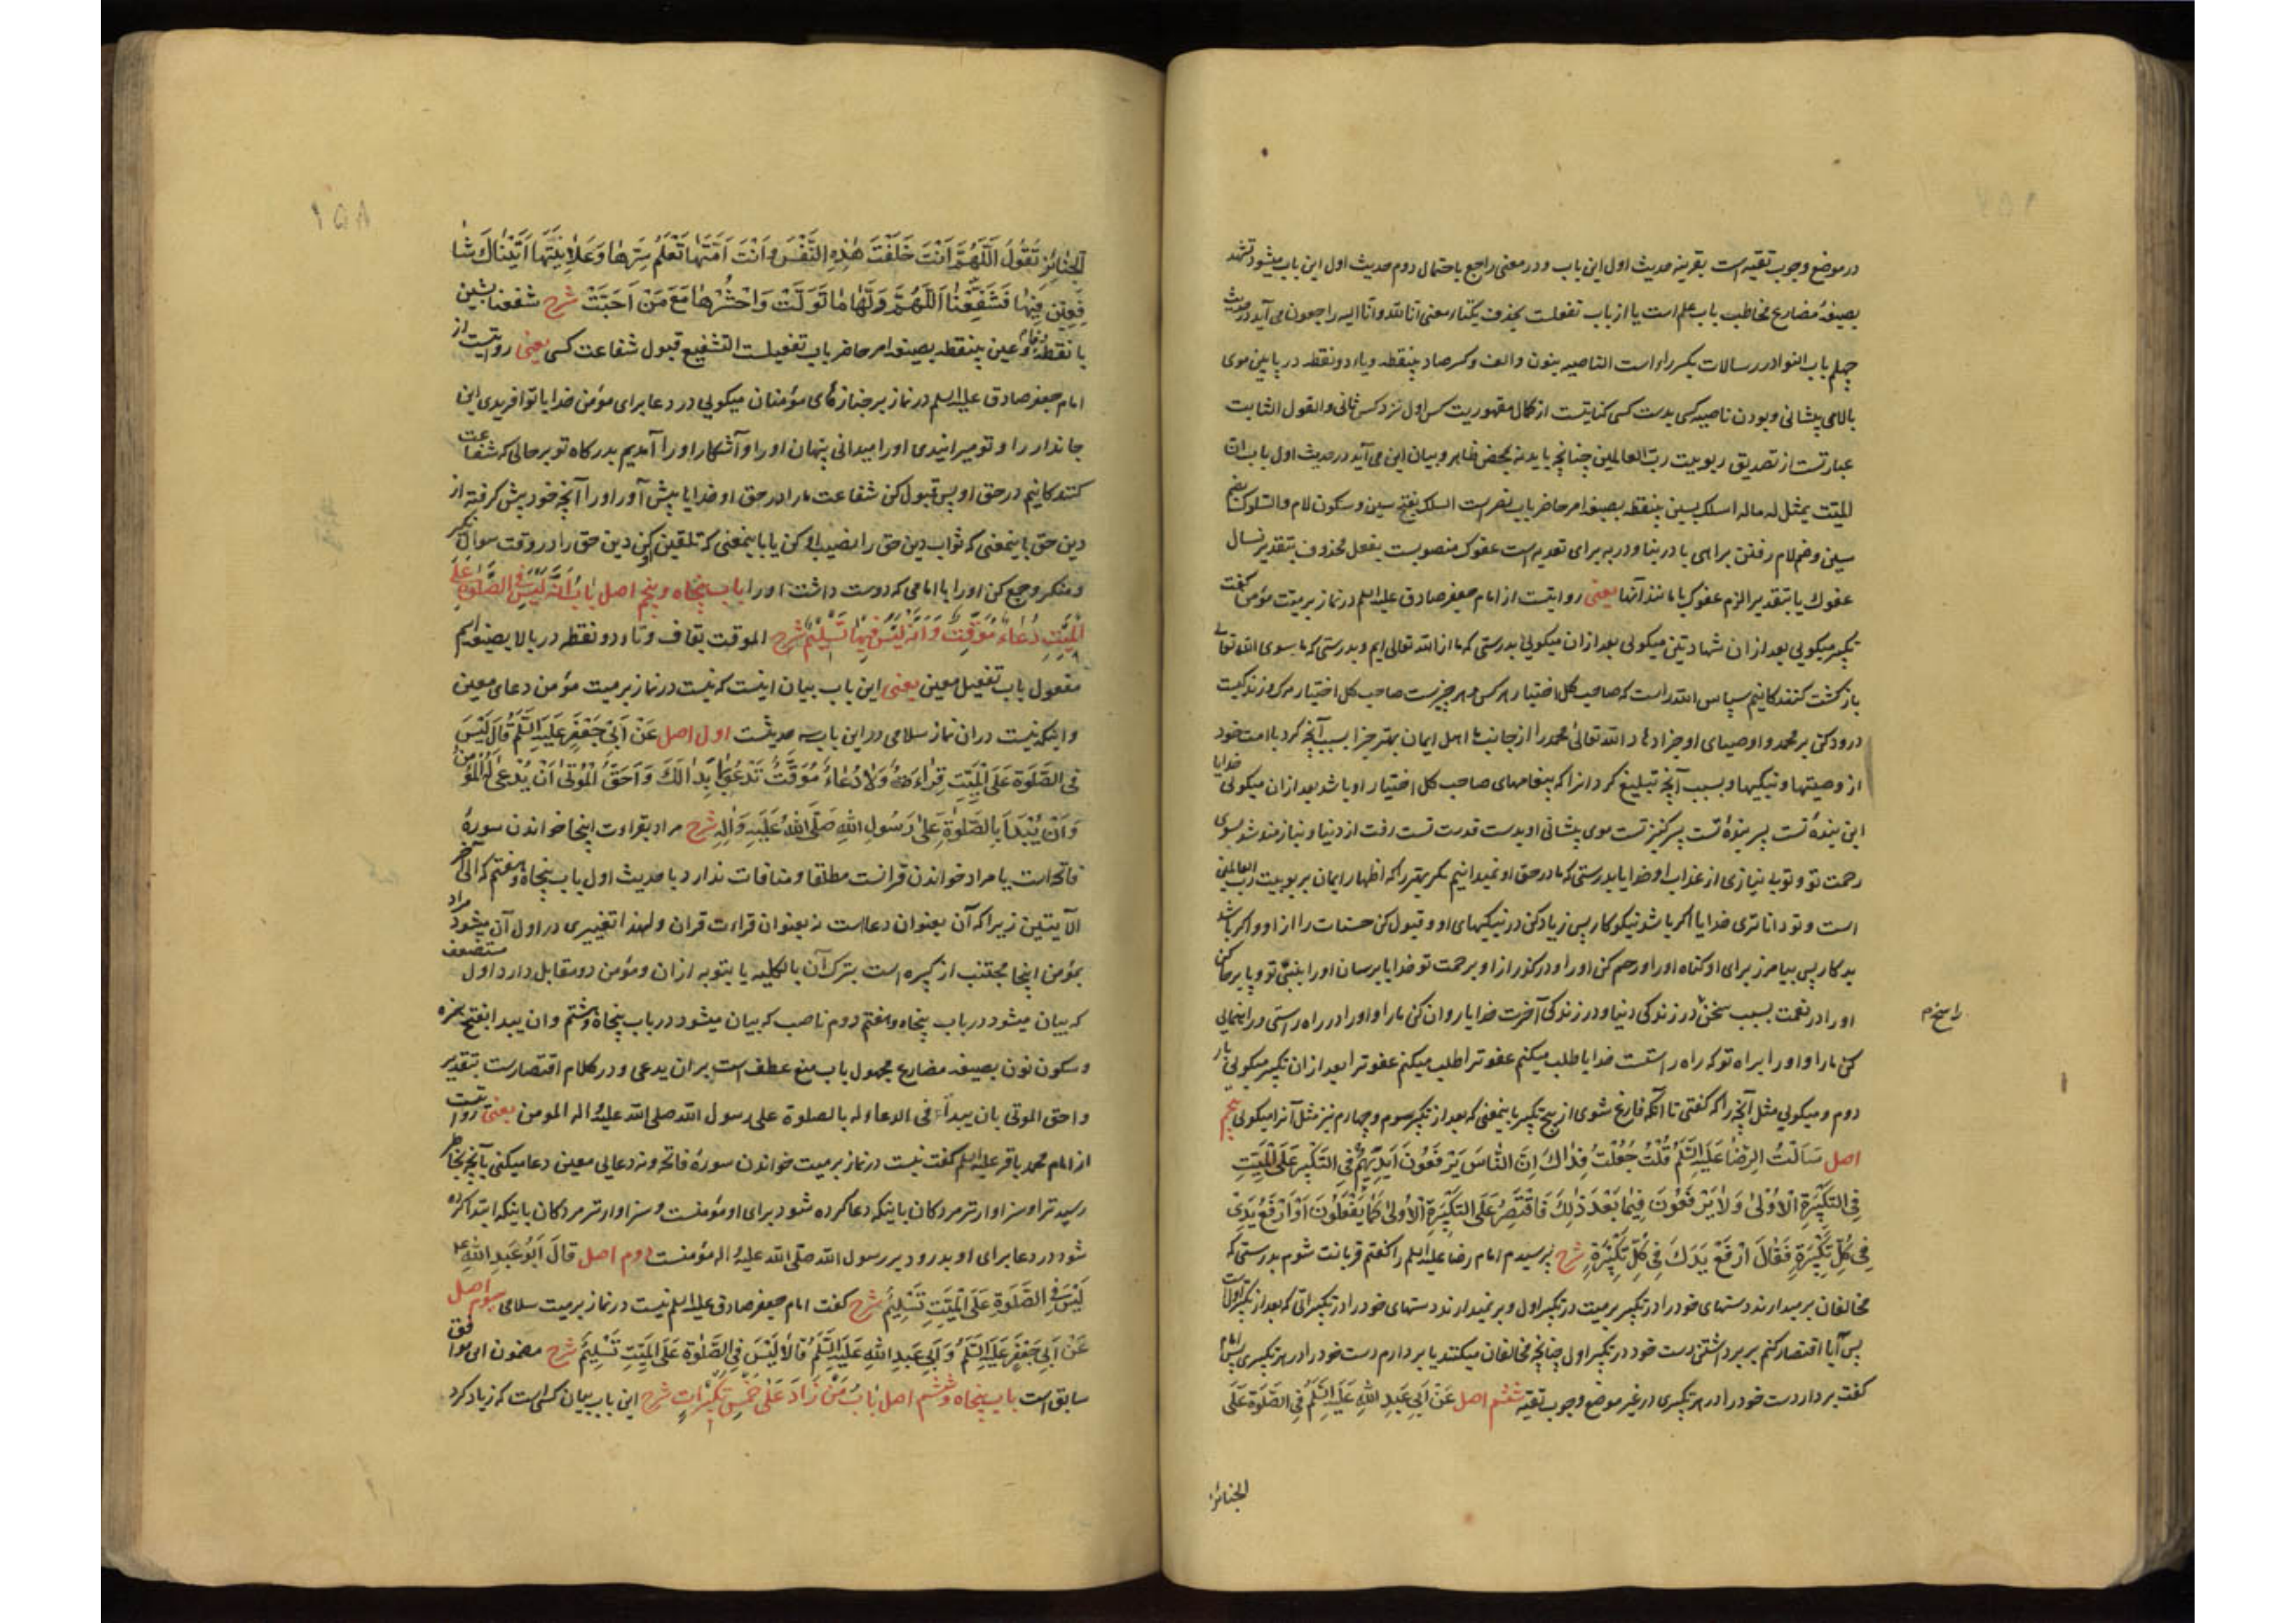 در موضع وجوب تقیه است بقرینه حدیث اول این باب و در معنی راجع باحتمال دوم حدیث اول این باب میشود تشهد
بصیغهٔ مضارع مخاطب باب علم است یا از باب تفعلت بحذف یکتاء معنی انا لله وانا الیه راجعون می آید در حدیث
چهلم باب النوادر رسالات یکسر راء است الناصیه بنون والف وکسر صاد بینقطه ویاء دونقطه در پایین موی
بالای پیشانی وبودن ناصیه کسی بدست کسی کنایتست از کمال مقهوریت کس اول نزد کس ثانی والقول الثابت
عبارتست از تصدیق ربوبیت رب العالمین چنانچه باید نه بمحض ظاهر وبیان این می آید در حدیث اول باب ان
المیت یمثل له ماله اسلک بسین بینقطه بصیغه امر حاضر باب نصر است السلک بفتح سین وسکون لام والسلوک بضم
سین وضم لام رفتن براهی با در بنا ودر به برای تعدیه است عفوک منصوبست بفعل محذوف بتقدیر نسال
عفوک یا بتقدیر الزم عفوک یا مانند آنها یعنی روایتست از امام جعفر صادق علیه السلم در نماز بر میت مؤمن گفت
تکبیر میکویی بعد از ان شهادتین میکویی بعد از ان میکویی بدرستی که ما از الله تعالی ایم وبدرستی که ما بسوی الله تعالی
بازکشت کنندکانیم سپاس الله را است که صاحب کل اختیار هر کس وهر چیزست صاحب کل اختیار مرک وزندکیست
درود کن بر محمد واوصیای او جزا دهاد الله تعالی محمد را از جانب ما اهل ایمان بهتر جزا بسبب آنچه کرد با امت خود
از وصیتها ونیکیها وبسبب آنچه تبلیغ کرد انرا که پیغامهای صاحب کل اختیار او باشد بعد از ان میکویی خدایا
این بندهٔ تست پسر بندهٔ تست پسر کنیز تست موی پیشانی او بدست قدرت تست رفت از دنیا ونیازمند شد بسوی
رحمت تو وتو بی نیازی از عذاب او خدایا بدرستی که ما در حق او نمیدانیم مکر بهتر را که اظهار ایمان بربوبیت رب العالمین
است وتو داناتری خدایا اگر باشد نیکوکار پس زیاد کن در نیکیهای او وقبول کن حسنات را از او واکر باشد
بدکار پس بیامرز برای او کناه او را ورحم کن او را ودرکذر از او برحمت تو خدایا برسان او را بنبی تو وپا برجا کن
او را در نعمت بسبب سخن در زندکی دنیا ودر زندکی آخرت خدایا روان کن ما را واو را در راه راستی وراهنمایی
راسخ م
کن ما را واو را براه تو که راه راستست خدایا طلب میکنم عفو ترا طلب میکنم عفو ترا بعد از ان تکبیر میکویی بار
دوم ومیکویی مثل آنچه را که کفتی تا آنکه فارغ شوی از پنج تکبیر باینمعنی که بعد از تکبیر سوم وچهارم نیز مثل آنرا میکویی پنجم
اصل سَاَلْتُ الرِّضَا عَلَیْهِ السَّلَمُ قُلْتُ جُعِلْتُ فِدَاكَ اِنَّ النَّاسَ یَرْفَعُونَ اَیْدِیَهُمْ فِی التَّکْبِیرِ عَلَی الْمَیِّتِ
فِی التَّکْبِیرَةِ الْاُولَی وَلَا یَرْفَعُونَ فِیمَا بَعْدَ ذَلِكَ فَاَقْتَصِرُ عَلَی التَّکْبِیرَةِ الْاُولَی کَمَا یَفْعَلُونَ اَوْ اَرْفَعُ یَدَیَّ
فِی کُلِّ تَکْبِیرَةٍ فَقَالَ اِرْفَعْ یَدَكَ فِی کُلِّ تَکْبِیرَةٍ شرح پرسیدم امام رضا علیه السلم را کفتم قربانت شوم بدرستی که
مخالفان برمیدارند دستهای خود را در تکبیر بر میت در تکبیر اول وبرنمیدارند دستهای خود را در تکبیراتی که بعد از تکبیر اولست
پس آیا اقتصار کنم بر برداشتن دست خود در تکبیر اول چنانچه مخالفان میکنند یا بردارم دست خود را در هر تکبیری پس امام
گفت بردار دست خود را در هر تکبیری در غیر موضع وجوب تقیه ششم اصل عَنْ اَبِی عَبْدِ اللهِ عَلَیْهِ السَّلَمُ فِی الصَّلَوةِ عَلَی
الجنائز
۱۵۸
الْجَنَائِزِ تَقُولُ اَللّهُمَّ اَنْتَ خَلَقْتَ هٰذِهِ النَّفْسَ وَاَنْتَ اَمَتَّهَا تَعْلَمُ سِرَّهَا وَعَلَانِیَتَهَا اَتَیْنَاكَ شَا
فِعِینَ فِیهَا فَشَفِّعْنَا اَللّهُمَّ وَلِّهَا مَا تَوَلَّتْ وَاحْشُرْهَا مَعَ مَنْ اَحَبَّتْ شرح شفعنا بشین
با نقطه وفا وعین بینقطه بصیغه امر حاضر باب تفعیلست التشفیع قبول شفاعت کسی یعنی روایتست از
امام جعفر صادق علیه السلم در نماز بر جنازهای مؤمنان میکویی در دعا برای مؤمن خدایا تو آفریدی این
جاندار را وتو میرانیدی او را میدانی پنهان او را وآشکار او را آمدیم بدرکاه تو بر حالی که شفاعت
کنندکانیم در حق او پس قبول کن شفاعت ما را در حق او خدایا پیش آور او را آنچه خود پیش کرفته از
دین حق باینمعنی که ثواب دین حق را نصیب او کن یا باینمعنی که تلقین کن دین حق را در وقت سوال نکیر
ومنکر وجمع کن او را با امامی که دوست داشت او را باب پنجاه وپنجم اصل بَابُ اَنَّهُ لَیْسَ فِی الصَّلَوةِ عَلَی
الْمَیِّتِ دُعَاءٌ مُوَقَّتٌ وَاَنَّهُ لَیْسَ فِیهَا تَسْلِیمٌ شرح الموقت بقاف وتاء دونقطه در بالا بصیغه اسم
مفعول باب تفعیل معین یعنی این باب بیان اینست که نیست در نماز بر میت مؤمن دعای معین
واینکه نیست در ان نماز سلامی در این باب سه حدیثست اول اصل عَنْ اَبِی جَعْفَرٍ عَلَیْهِ السَّلَمُ قَالَ لَیْسَ
فِی الصَّلَوةِ عَلَی الْمَیِّتِ قِرَاءَةٌ وَلَا دُعَاءٌ مُوَقَّتٌ تَدْعُو بِمَا بَدَا لَكَ وَاَحَقُّ الْمَوْتَی اَنْ یُدْعَی لَهُ الْمُؤْمِنُ
وَاَنْ یُبْدَاَ بِالصَّلَوةِ عَلَی رَسُولِ اللهِ صَلَّی اللهُ عَلَیْهِ وَآلِهِ شرح مراد بقراءت اینجا خواندن سورهٔ
فاتحه است یا مراد خواندن قرآنست مطلقا ومنافات ندارد با حدیث اول باب پنجاه وهفتم که الی آخر
الآیتین زیرا که آن بعنوان دعا است نه بعنوان قراءت قران ولهذا تغییری در اول آن میشود مراد
بمؤمن اینجا مجتنب از کبیره است بترک آن بالکلیه یا بتوبه از ان ومؤمن دو مقابل دارد اول مستضعف
که بیان میشود در باب پنجاه وهفتم دوم ناصب که بیان میشود در باب پنجاه وهشتم وان یبدا بفتح همزه
وسکون نون بصیغه مضارع مجهول باب منع عطف است بر ان یدعی ودر کلام اقتصارست بتقدیر
واحق الموتی بان یبدأ فی الدعاء له بالصلوة علی رسول الله صلی الله علیه واله المومن یعنی روایتست
از امام محمد باقر علیه السلم گفت نیست در نماز بر میت خواندن سورهٔ فاتحه ونه دعایی معین دعا میکنی بآنچه بخاطر
رسید ترا وسزاوارتر مردکان باینکه دعا کرده شود برای او مؤمنست وسزاوارتر مردکان باینکه ابتدا کرده
شود در دعا برای او بدرود بر رسول الله صلی الله علیه واله مؤمنست دوم اصل قَالَ اَبُو عَبْدِ اللهِ ع
لَیْسَ فِی الصَّلَوةِ عَلَی الْمَیِّتِ تَسْلِیمٌ شرح گفت امام جعفر صادق علیه السلم نیست در نماز بر میت سلامی سوم اصل
عَنْ اَبِی جَعْفَرٍ عَلَیْهِ السَّلَمُ وَاَبِی عَبْدِ اللهِ عَلَیْهِ السَّلَمُ قَالَا لَیْسَ فِی الصَّلَوةِ عَلَی الْمَیِّتِ تَسْلِیمٌ شرح مضمون این موافق
سابق است باب پنجاه وششم اصل بَابُ مَنْ زَادَ عَلَی خَمْسِ تَکْبِیرَاتٍ شرح این باب بیان کسی است که زیاد کرد